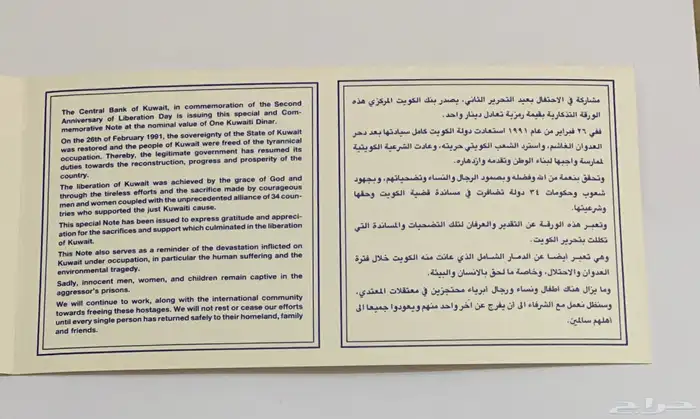 The Central Bank of Kuwait, in commemoration of the Second
Anniversary of Liberation Day is issuing this special and Com-
memorative Note at the nominal value of One Kuwaiti Dinar.
On the 26th of February 1991, the sovereignty of the State of Kuwait
was restored and the people of Kuwait were freed of the tyrannical
occupation. Thereby, the legitimate government has resumed its
duties towards the reconstruction, progress and prosperity of the
country.
The liberation of Kuwait was achieved by the grace of God and
through the tireless efforts and the sacrifice made by courageous
men and women coupled with the unprecedented alliance of 34 coun-
tries who supported the just Kuwaiti cause.
This special Note has been issued to express gratitude and appreci-
ation for the sacrifices and support which culminated in the liberation
of Kuwait.
This Note also serves as a reminder of the devastation inflicted on
Kuwait under occupation, in particular the human suffering and the
environmental tragedy.
Sadly, innocent men, women, and children remain captive in the
aggressor's prisons.
We will continue to work, along with the international community
towards freeing these hostages. We will not rest or cease our efforts
until every single person has returned safely to their homeland, family
and friends.
مشاركة في الاحتفال بعيد التحرير الثاني، يصدر بنك الكويت المركزي هذه
الورقة التذكارية بقيمة رمزية تعادل دينار واحد.
ففي ٢٦ فبراير من عام ١٩٩١ استعادت دولة الكويت كامل سيادتها بعد دحر
العدوان الغاشم، واسترد الشعب الكويتي حريته، وعادت الشرعية الكويتية
لممارسة واجبها لبناء الوطن وتقدمه وازدهاره.
وتحقق بنعمة من الله وفضله وبصمود الرجال والنساء وتضحياتهم، وبجهود
شعوب وحكومات ٣٤ دولة تضافرت في مساندة قضية الكويت وحقها
وشرعيتها.
وتعبر هذه الورقة عن التقدير والعرفان لتلك التضحيات والمساندة التي
تكللت بتحرير الكويت.
وهي تعبر أيضا عن الدمار الشامل الذي عانت منه الكويت خلال فترة
العدوان والاحتلال، وخاصة ما لحق بالانسان والبيئة.
وما يزال هناك اطفال ونساء ورجال أبرياء محتجزين في معتقلات المعتدي.
وسنظل نعمل مع الشرفاء الى ان يفرج عن آخر واحد منهم ويعودوا جميعا الى
اهلهم سالمين.
حراج